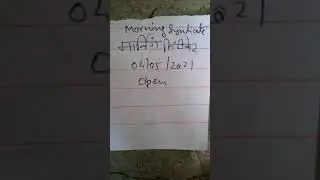 Morning Syndicate
मार्निंग सिंडिकेट
04/05/2021
Open